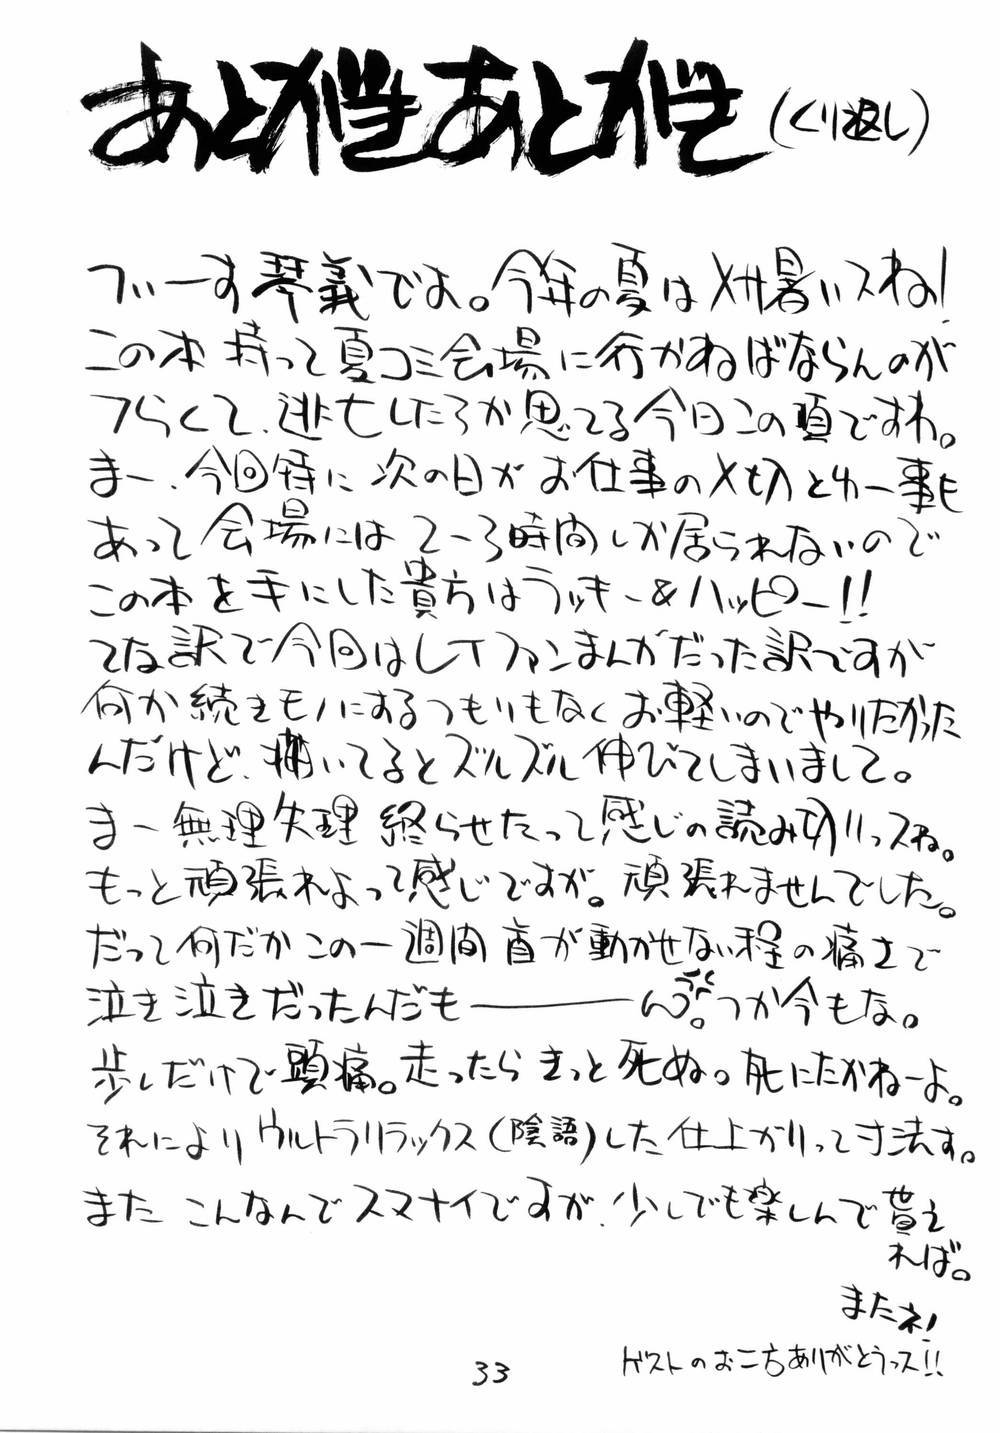 あとがきあとがき(くり返し)
ブいーす琴義でよ。今年の夏はメサ暑いスね!
この本持って夏コミ会場に行かねばならんのが
つらくて、逃亡したろか思てる今日この頃ですわ。
まー、今回特に次の日がお仕事の〆切とゆー事も
あって会場には2〜3時間しか居られないので
この本を手にした貴方はラッキー&ハッピー!!
てな訳で今回はレイファンまんがだった訳ですが
何か続きモノにするつもりもなくお軽いのでやりたかった
んだけど、描いてるとズルズル伸びてしまいまして。
まー無理矢理終らせたって感じの読み切りっスね。
もっと頑張れよって感じですが。頑張れませんでした。
だって何だかこの一週間首が動かせない程の痛さで
泣き泣きだったんだも――――ん。つか今もな。
歩しだけで頭痛。走ったらきっと死ぬ。死にたかねーよ。
それによりウルトラリラックス(陰語)した仕上がりって寸法す。
またこんなんでスマナイですが、少しでも楽しんで貰え
れば。
またネ!
ゲストのお二方ありがとうっス!!
33